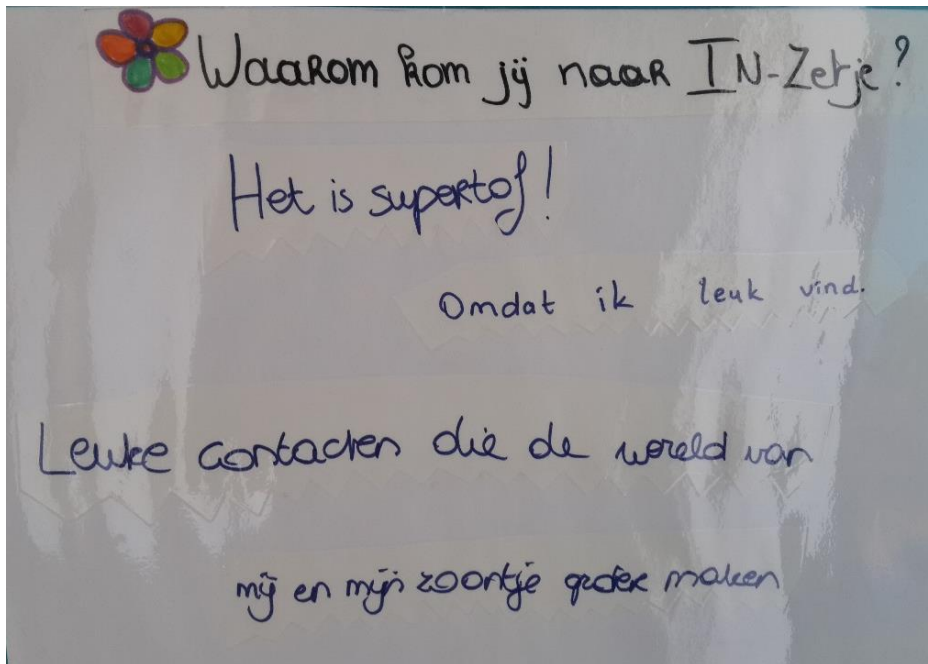 Waarom kom jij naar IN-Zetje?
Het is supertof!
Omdat ik leuk vind.
Leuke contacten die de wereld van
mij en mijn zoontje groter maken